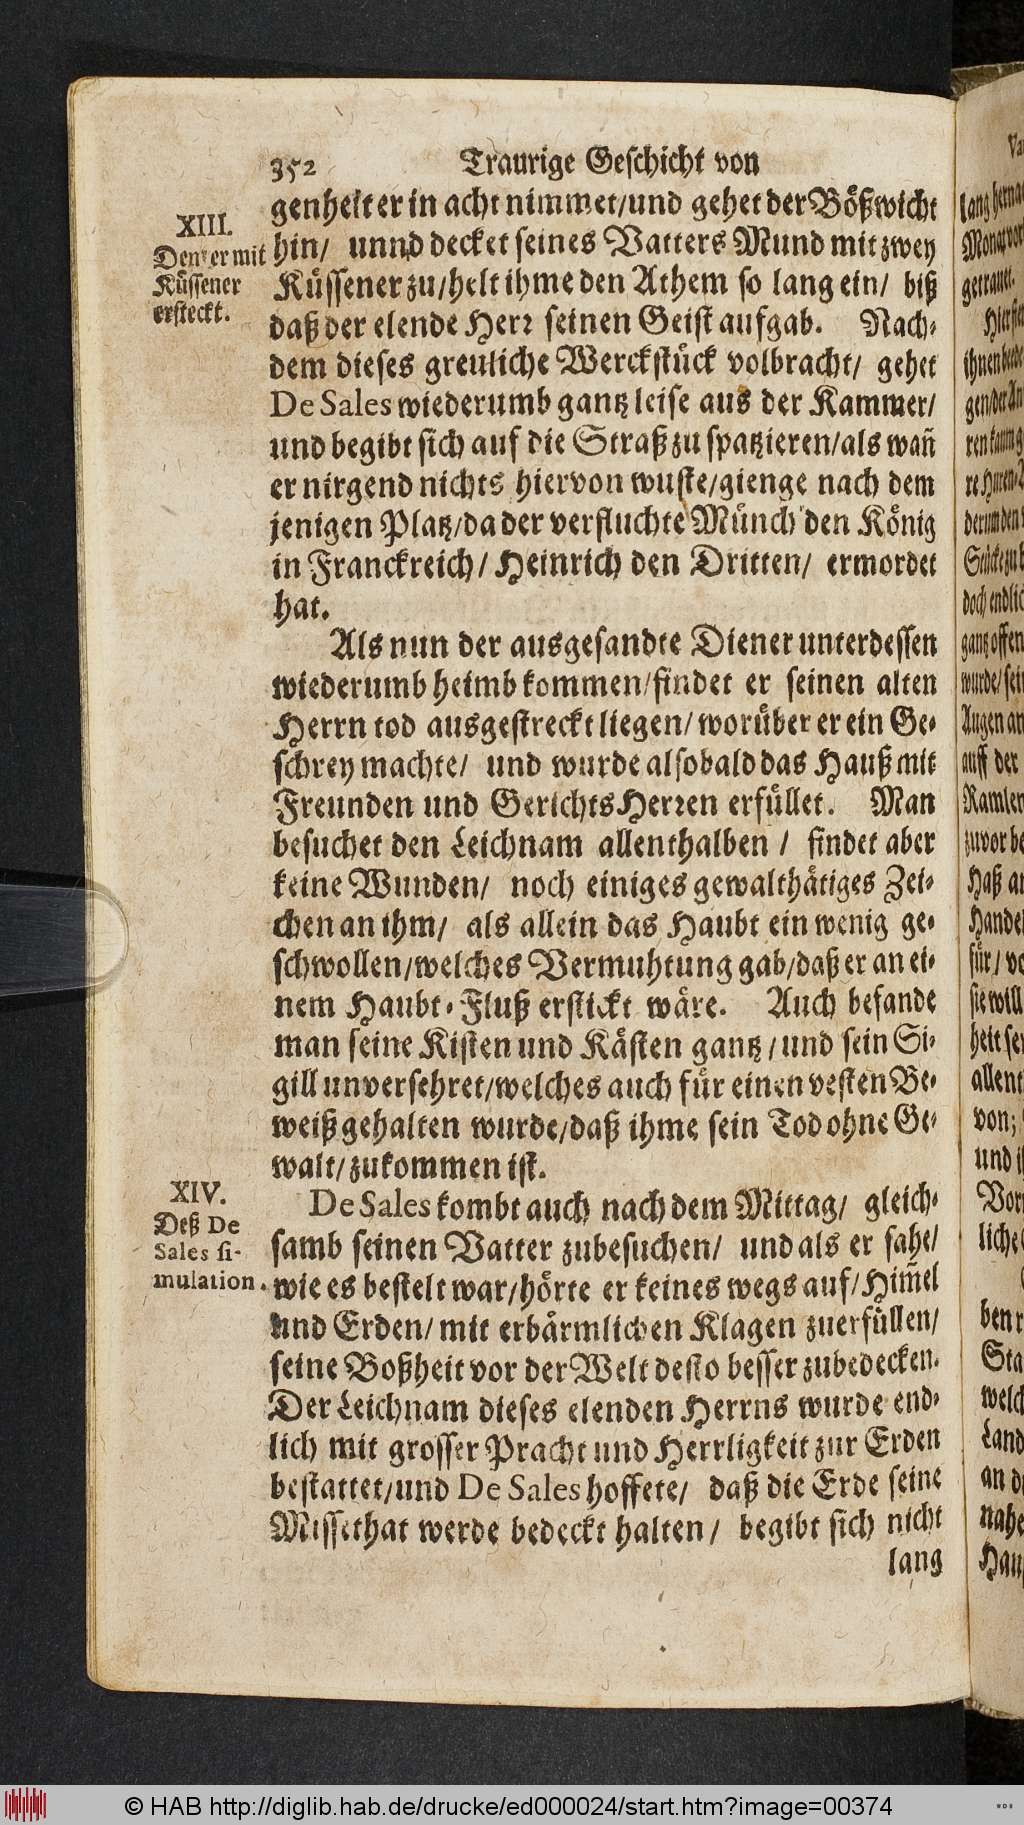 352 Traurige Geschicht von
genheit er in acht nimmet/und gehet der Bößwicht
XIII.
Den er mit
Küssener
ersteckt.
hin/ unnd decket seines Vatters Mund mit zwey
Küssener zu/helt ihme den Athem so lang ein/ biß
daß der elende Herr seinen Geist aufgab. Nach-
dem dieses greuliche Werckstück volbracht/ gehet
De Sales wiederumb gantz leise aus der Kammer/
und begibt sich auf die Straß zu spatzieren/als wañ
er nirgend nichts hiervon wuste/gienge nach dem
jenigen Platz/da der verfluchte Münch den König
in Franckreich/ Heinrich den Dritten/ ermordet
hat.
Als nun der ausgesandte Diener unterdessen
wiederumb heimb kommen/findet er seinen alten
Herrn tod ausgestreckt liegen/worüber er ein Ge-
schrey machte/ und wurde alsobald das Hauß mit
Freunden und Gerichts Herren erfüllet. Man
besuchet den Leichnam allenthalben / findet aber
keine Wunden/ noch einiges gewalthätiges Zei-
chen an ihm/ als allein das Haubt ein wenig ge-
schwollen/welches Vermuhtung gab/daß er an ei-
nem Haubt-Fluß erstickt wäre. Auch befande
man seine Kisten und Kästen gantz/und sein Si-
gill unversehret/welches auch für einen vesten Be-
weiß gehalten wurde/daß ihme sein Tod ohne Ge-
walt/zukommen ist.
XIV.
Deß De
Sales si-
mulation.
De Sales kombt auch nach dem Mittag/ gleich-
samb seinen Vatter zubesuchen/ und als er sahe/
wie es bestelt war/hörte er keines wegs auf/Him̃el
und Erden/mit erbärmlichen Klagen zuerfüllen/
seine Boßheit vor der Welt desto besser zubedecken.
Der Leichnam dieses elenden Herrns wurde end-
lich mit grosser Pracht und Herrligkeit zur Erden
bestattet/und De Sales hoffete/ daß die Erde seine
Missethat werde bedeckt halten/ begibt sich nicht
lang
© HAB http://diglib.hab.de/drucke/ed000024/start.htm?image=00374